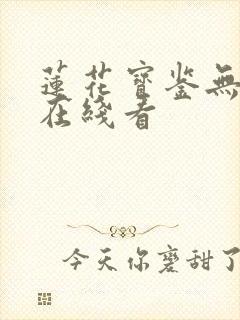 蓮花寶鉴無
在綫看
今天你磨甜了